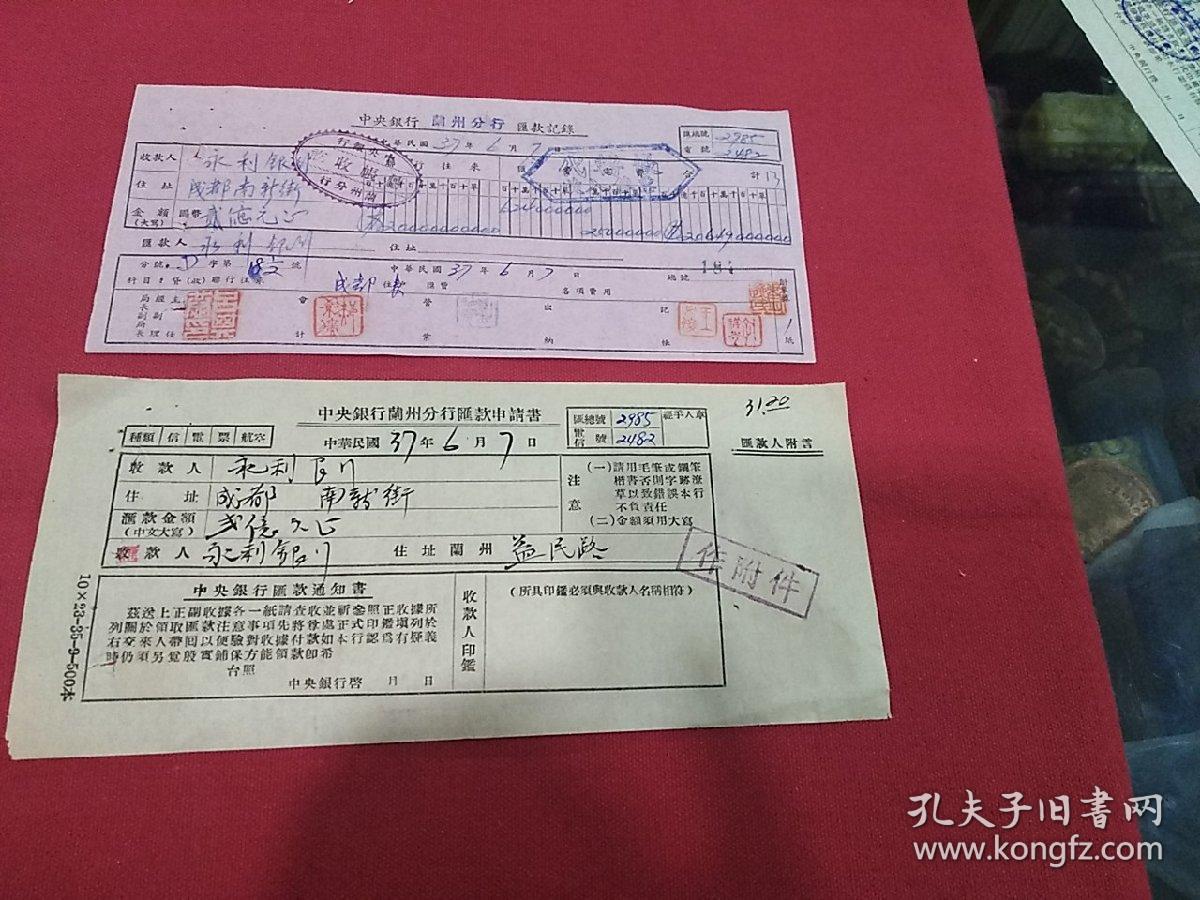 中央銀行 蘭州分行 匯款記錄
中華民國 37年 6月 7日
匯總號 2985
電號 2482
收款人 永利銀川
住址 成都南新街
金額 國幣 貳億元正
(大寫)
匯款人 永利銀川 住址
計13
收
蘭州分行
分號 字第 號
中華民國 37年 6月 7日
總號 184
科目 成都 匯費 各項費用
會計
營業
出納
記帳
中央銀行蘭州分行匯款申請書
31.20
種類 信 電 票 航空
中華民國 37年 6月 7日
匯總號 2985
電信號 2482
經手人章
匯款人附言
收款人 永利銀川
住址 成都 南新街
匯款金額 貳億元正
(中文大寫)
收款人 永利銀川 住址蘭州 益民路
注意
(一)請用毛筆或鋼筆
楷書否則字跡潦
草以致錯誤本行
不負責任
(二)金額須用大寫
作附件
中央銀行匯款通知書
茲送上正副收據各一紙請查收並祈參照正收據所
列關於領取匯款注意事項先將掌處正式印鑑填列於
右交來人帶回以便驗對收據付款如本行認爲有疑義
時仍須另覓殷實鋪保方能領款卽希
台照
中央銀行啓 月 日
收款人印鑑
(所具印鑑必須與收款人名稱相符)
10×23-35-9-500本
孔夫子旧书网
www.kongfz.com